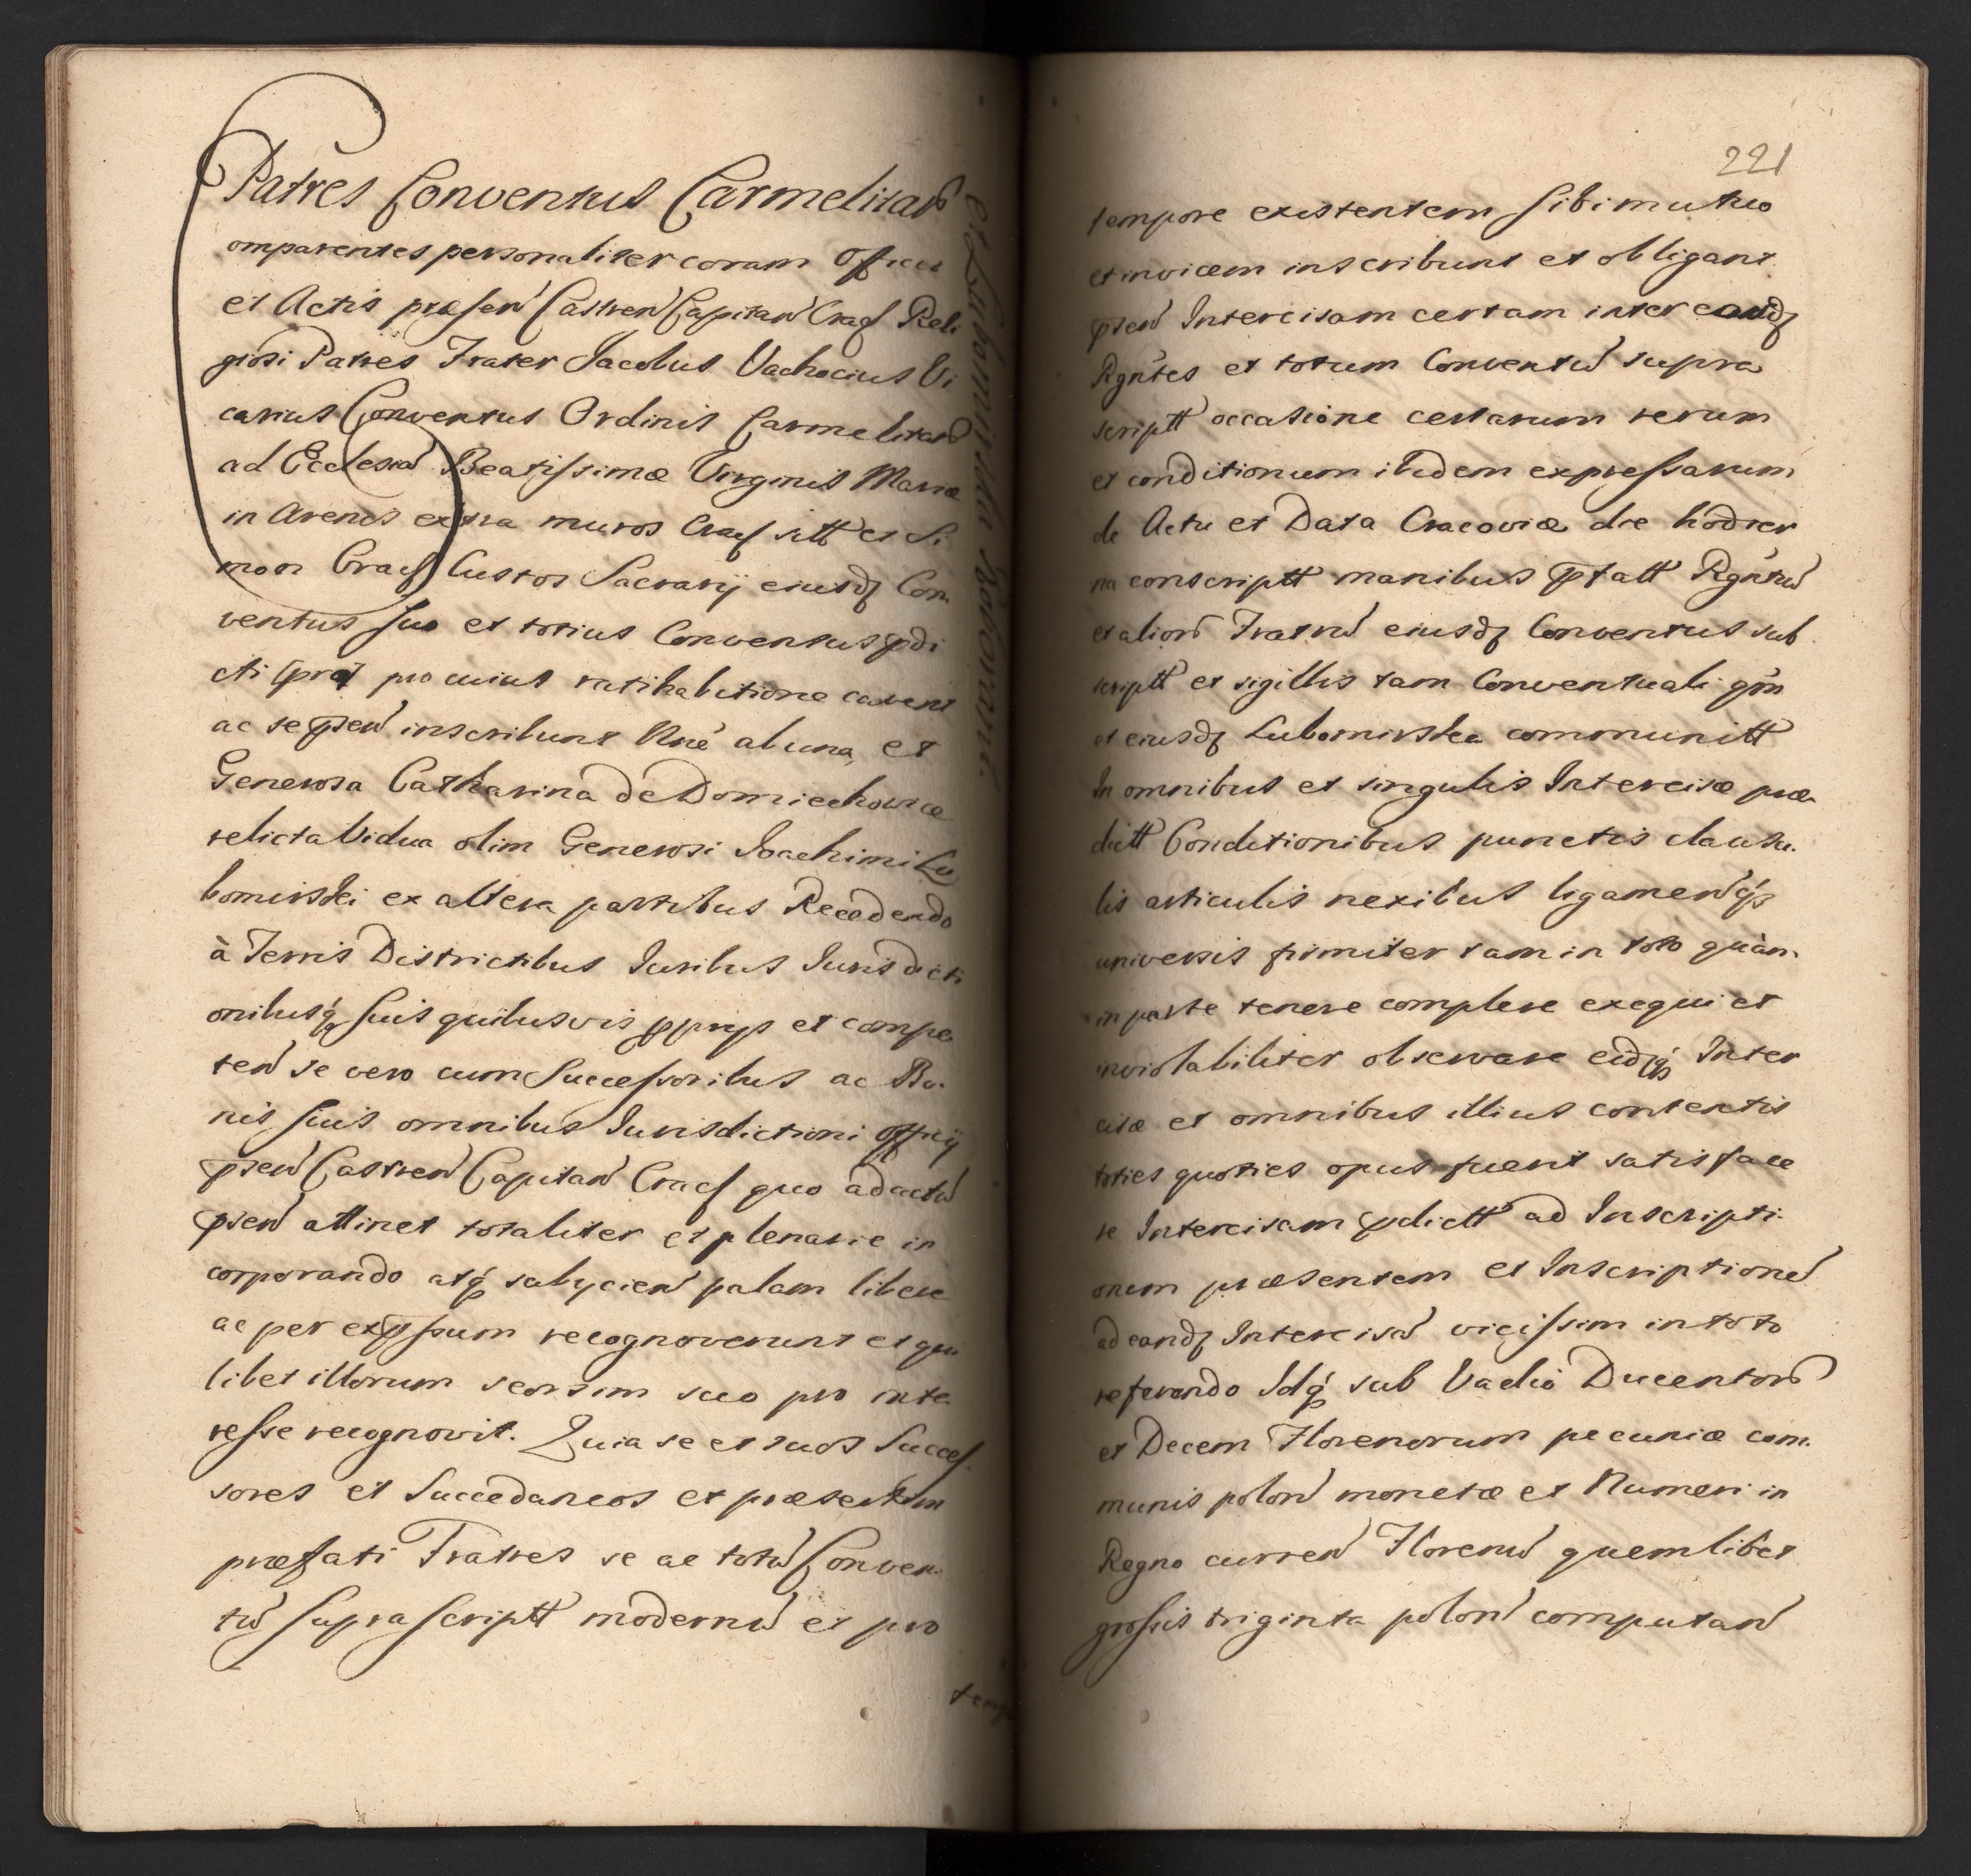 Patres Conventus Carmelitar
omparentes personaliter coram Officio
et Actis præsen Castren Capitan Crac Reli
giosi Patres Frater Jacobus Vachocius Vi
carius Conventus Ordinis Carmelitar
ad Ecclesia Beatissimæ Virginis Mariæ
in Arenis extra muros Crac sitt et Si
mon Crac Custos Sacrarij eiusd Con
ventus suo et totius Conventus pdi
cti pro cuius ratihabitione cavent
ac se psen inscribunt nne ab una et
Generosa Catharina de Domiechowice
relicta Vidua olim Generosi Joachimi Lu
bomirski ex altera partibus Recedendo
à Terris Districtibus Juribus Jurisdicti
onibusq suis quibusvis pprijs et compe
ten se vero cum Successoribus ac Bo
nis suis omnibus Jurisdictioni Officij
psen Castren Capitan Crac quo ad actu
psen attinet totaliter et plenarie in
corporando atq subijcien palam libere
ac per expssum recognoverunt et qui
libet illorum seorsim suo pro inte
resse recognovit. Quia se et suos Succes
sores et Succedaneos et præsertim
præfati Fratres se ac totu Conven
tu suprascriptt modernu et pro
temp
et Lubomirska Roborant.
221
tempore existentem sibi mutuo
et invicem inscribunt et obligant
psen Intercisam certam inter eosdq
Rgntes et totum Conventu supra
scriptt occasione certarum rerum
et conditionum ibidem expressarum
de Actu et Data Cracoviæ die hodier
na conscriptt manibus pfatt Rgntiu
et alior Fratru eiusd Conventus sub
scriptt et sigillis tam Conventuali qm
et eiusd Lubomirska communitt
In omnibus et singulis Intercisæ præ
dictt Conditionibus punctis clausu
lis articulis nexibus ligamenq
universis firmiter tam in toto quàm
in parte tenere complere exequi et
inviolabiliter observare eidq Inter
cisæ et omnibus illius contentis
toties quoties opus fuerit satisface
re Intercisam pdictt ad Inscripti
onem præsentem et Inscriptione
ad eand Intercisa vicissim in toto
referendo Idq sub Vadio Ducentor
et Decem Florenorum pecuniæ com
munis polon monetæ et Numeri in
Regno curren Florenu quemlibet
grossis triginta polon computan